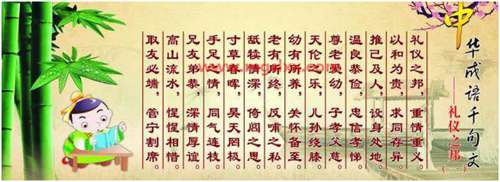 中华成语千句文
——礼仪之邦
礼仪之邦，重情重义
以和为贵，求同存异
推己及人，设身处地
温良恭俭，忠信孝悌
尊老爱幼，子孝父慈
天伦之乐，儿孙绕膝
幼有所养，关怀备至
老有所终，反哺之私
舐犊情深，倚闾之思
寸草春晖，昊天罔极
手足情深，同气连枝
兄友弟恭，深情厚谊
高山流水，惺惺相惜
取友必端，管宁割席